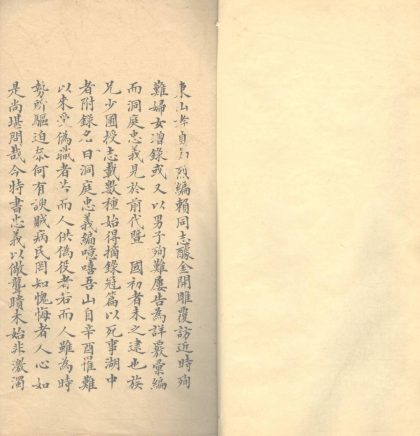 東山孝貞節烈編賴同志醵金開雕覆訪近時殉
難婦女瀆錄或又以男子殉難屢告為詳覈彙編
而洞庭忠義見於前代暨　國初者未之逮也族
兄少圃授志載數種始得摘錄冠篇以死事湖中
者附錄名曰洞庭忠義編噫嘻吾山自辛酉罹難
以來受偽職者若而人供偽役者若而人雖為時
勢所驅迫奈何有諛賊病民罔知愧悔者人心如
是尚堪問哉今特書忠義以儆聾聵未始非激濁